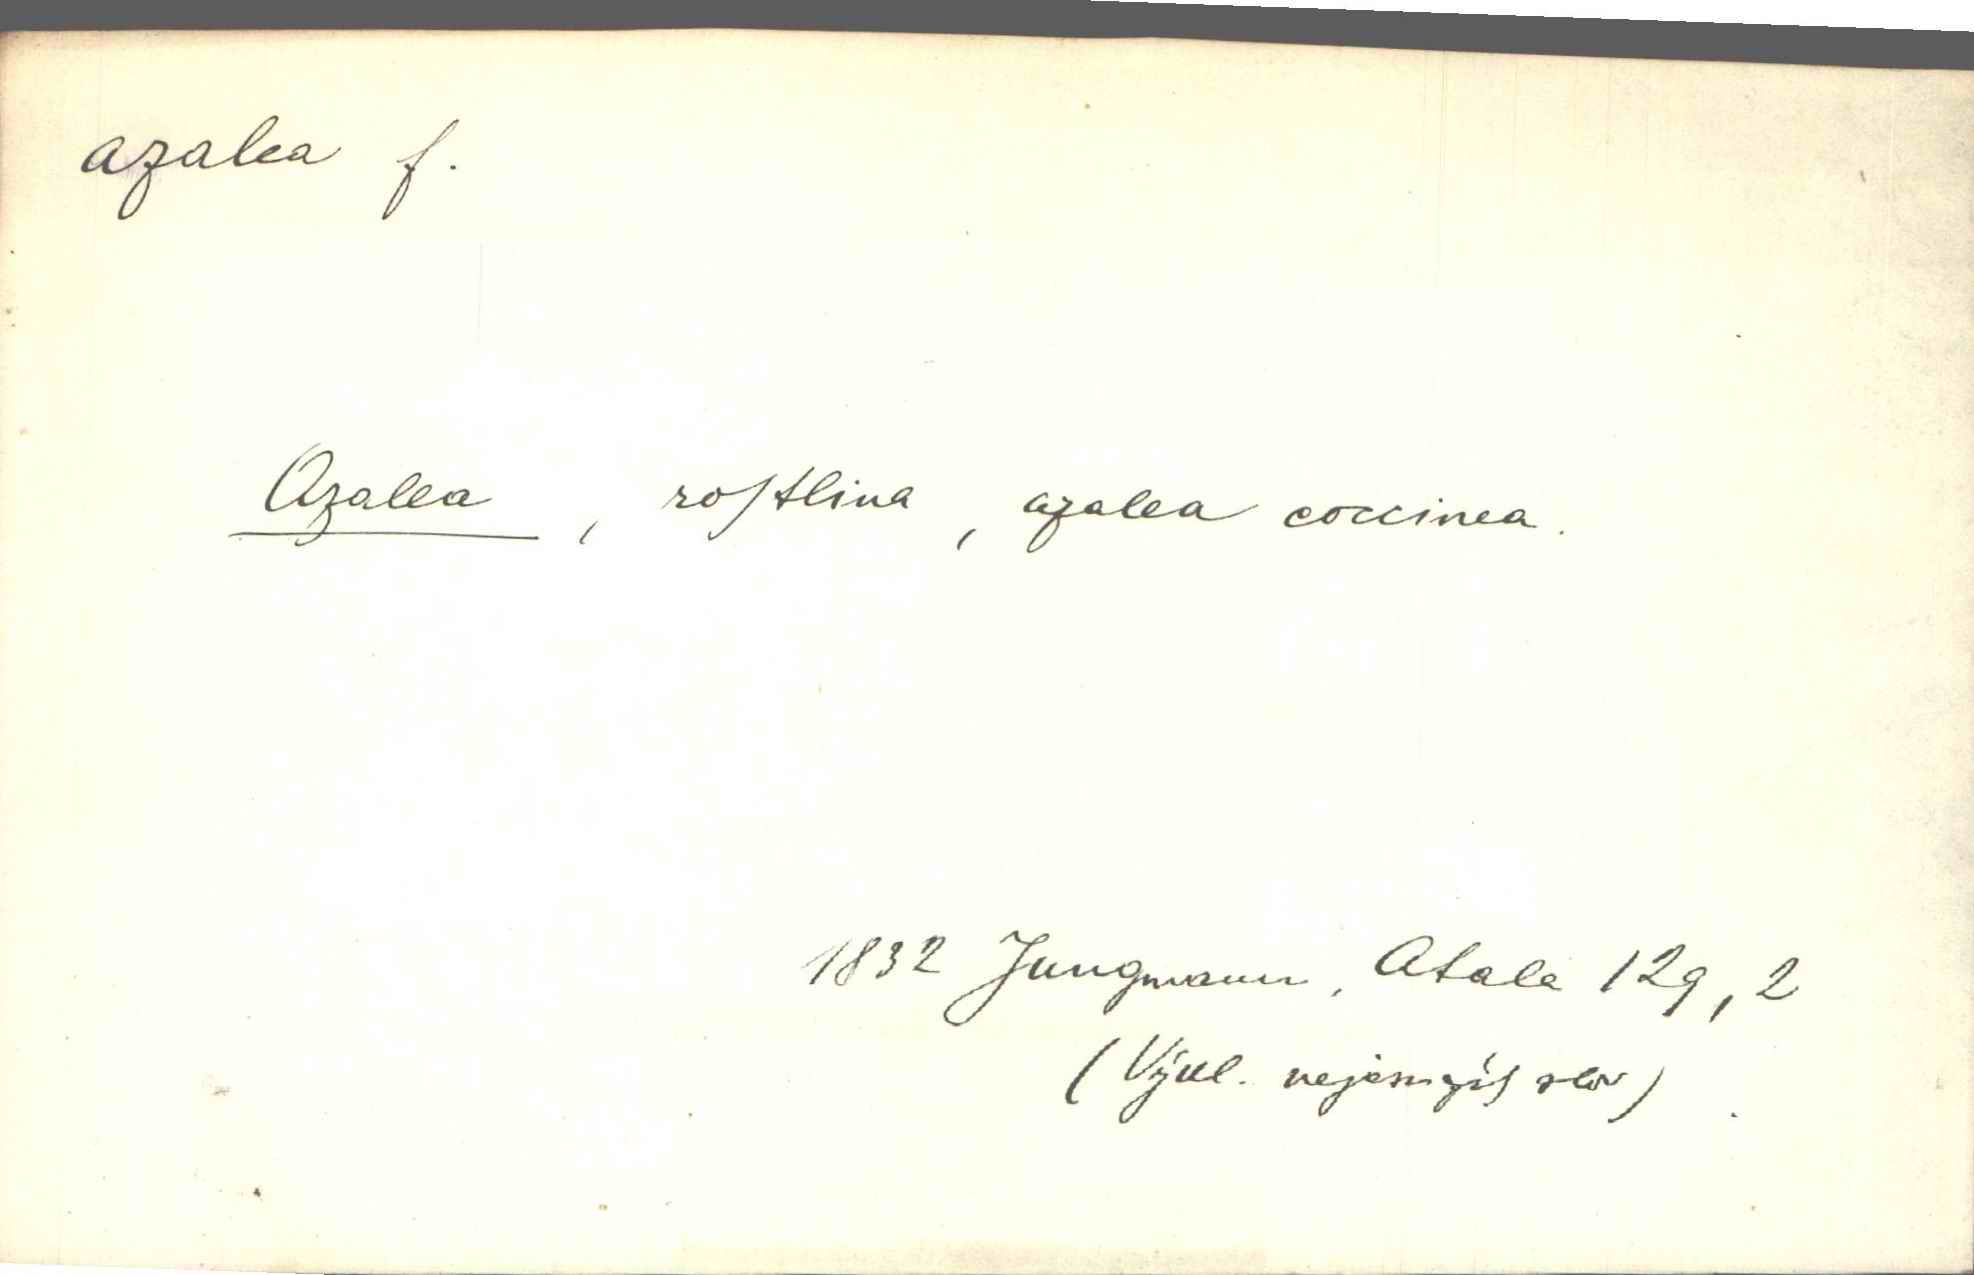 azalea f.
Azalea, rostlina, azalea coccinea.
1832 Jungmann, Atala 129, 2
(Výkl. nejasných slov)